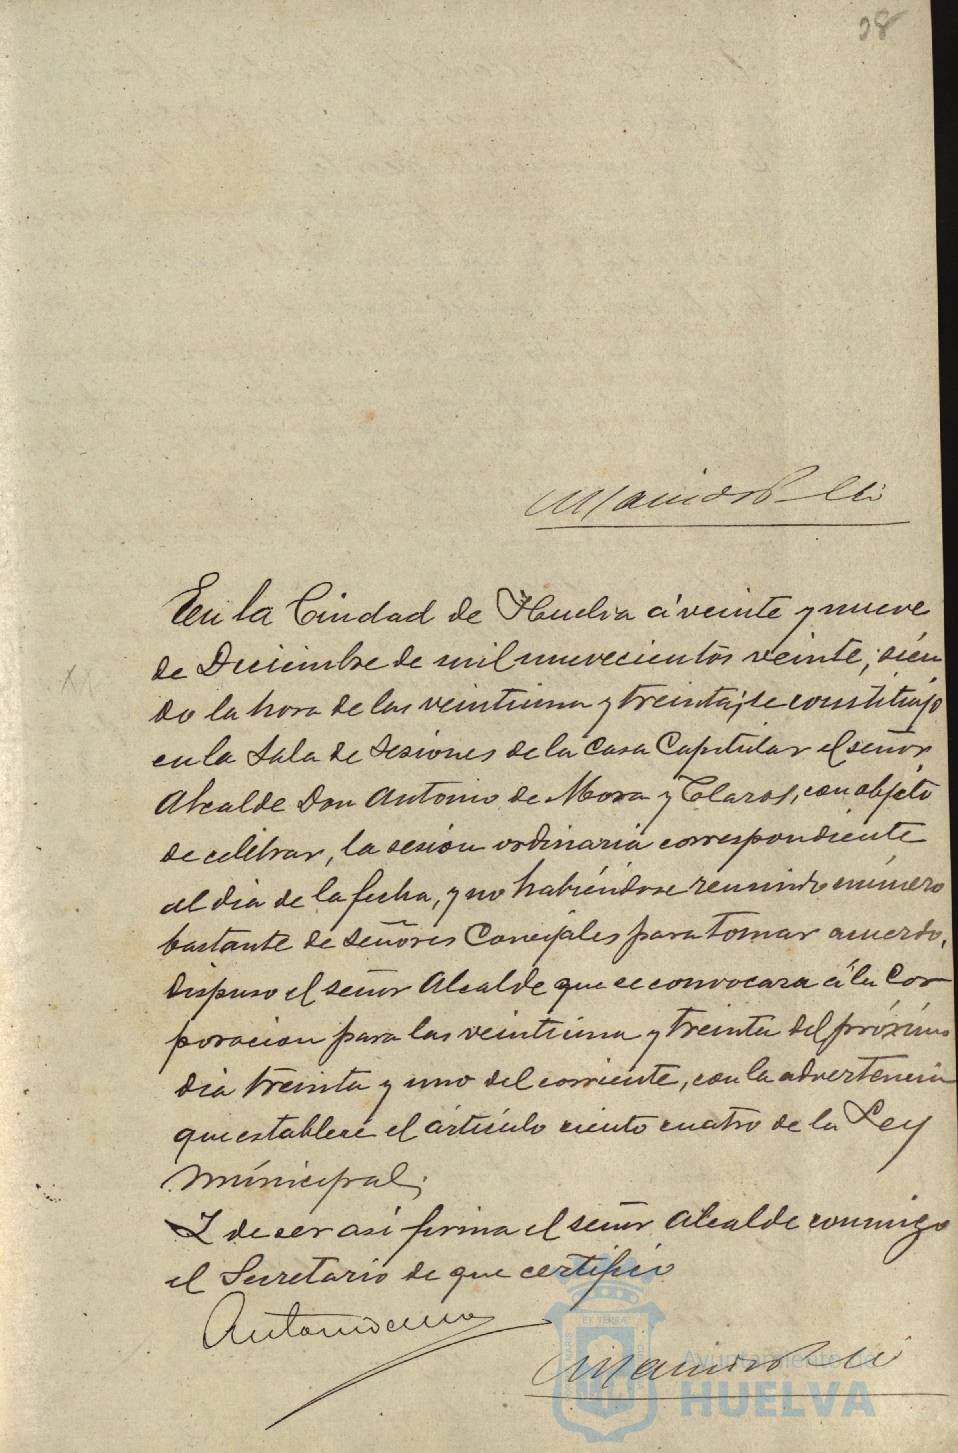 28
En la Ciudad de Huelva á veinte y nueve
de Diciembre de mil nuevecientos veinte, sien
do la hora de las veintiuna y treinta, se constituyó
en la Sala de Sesiones de la Casa Capitular el señor
Alcalde Don Antonio de Mora y Claros, con objeto
de celebrar, la sesión ordinaria correspondiente
al dia de la fecha, y no habiéndose reunido número
bastante de señores Concejales para tomar acuerdo,
dispuso el señor Alcalde que se convocara á la Cor
poracion para las veintiuna y treinta del próximo
dia treinta y uno del corriente, con la advertencia
que establece el artículo ciento cuatro de la Ley
Municipal;
Y de ser así firma el señor Alcalde conmigo
el Secretario de que certifico
Antonio de Mora
Ayuntamiento de
HUELVA